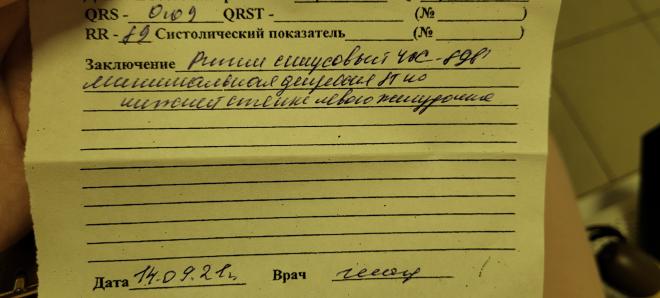 QRS - 0,09 QRST - (№ )
RR - 89 Систолический показатель (№ )
Заключение Ритм синусовый ЧСС - 89 в 1'
Минимальная депрессия ST по
нижней стенке левого желудочка
Дата 14.09.21г. Врач